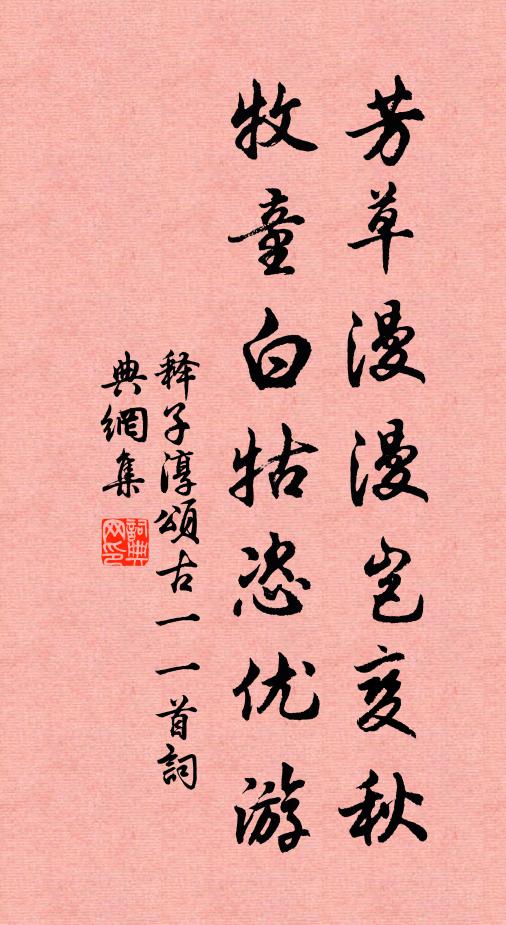 芳草漫漫岂变秋
牧童白牯恣优游
释子淳頌古一一首詞
典網集
詞典网印